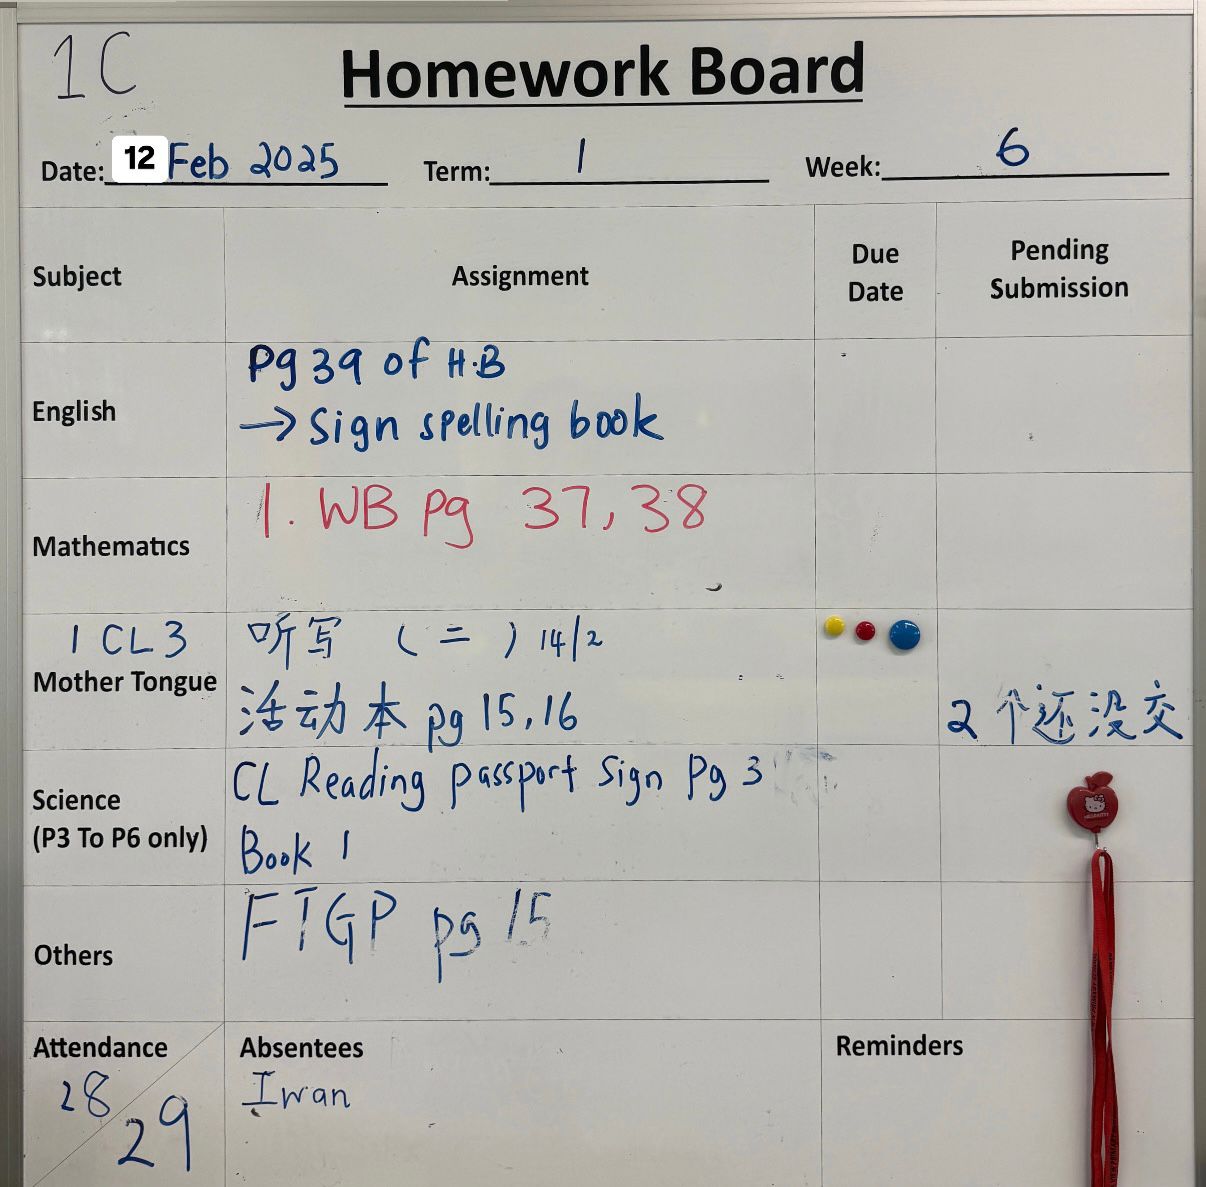 1C
Homework Board
Date: 12 Feb 2025 Term: 1 Week: 6
Subject Assignment Due Date Pending Submission
English
Pg 39 of H.B
→ Sign spelling book
Mathematics
1. WB pg 37, 38
1 CL3
Mother Tongue
听写 (二) 14/2
活动本 pg 15, 16
2 个还没交
Science
(P3 To P6 only)
CL Reading passport sign Pg 3
Book 1
Others
FTGP pg 15
Attendance
28/29
Absentees
Iwan
Reminders